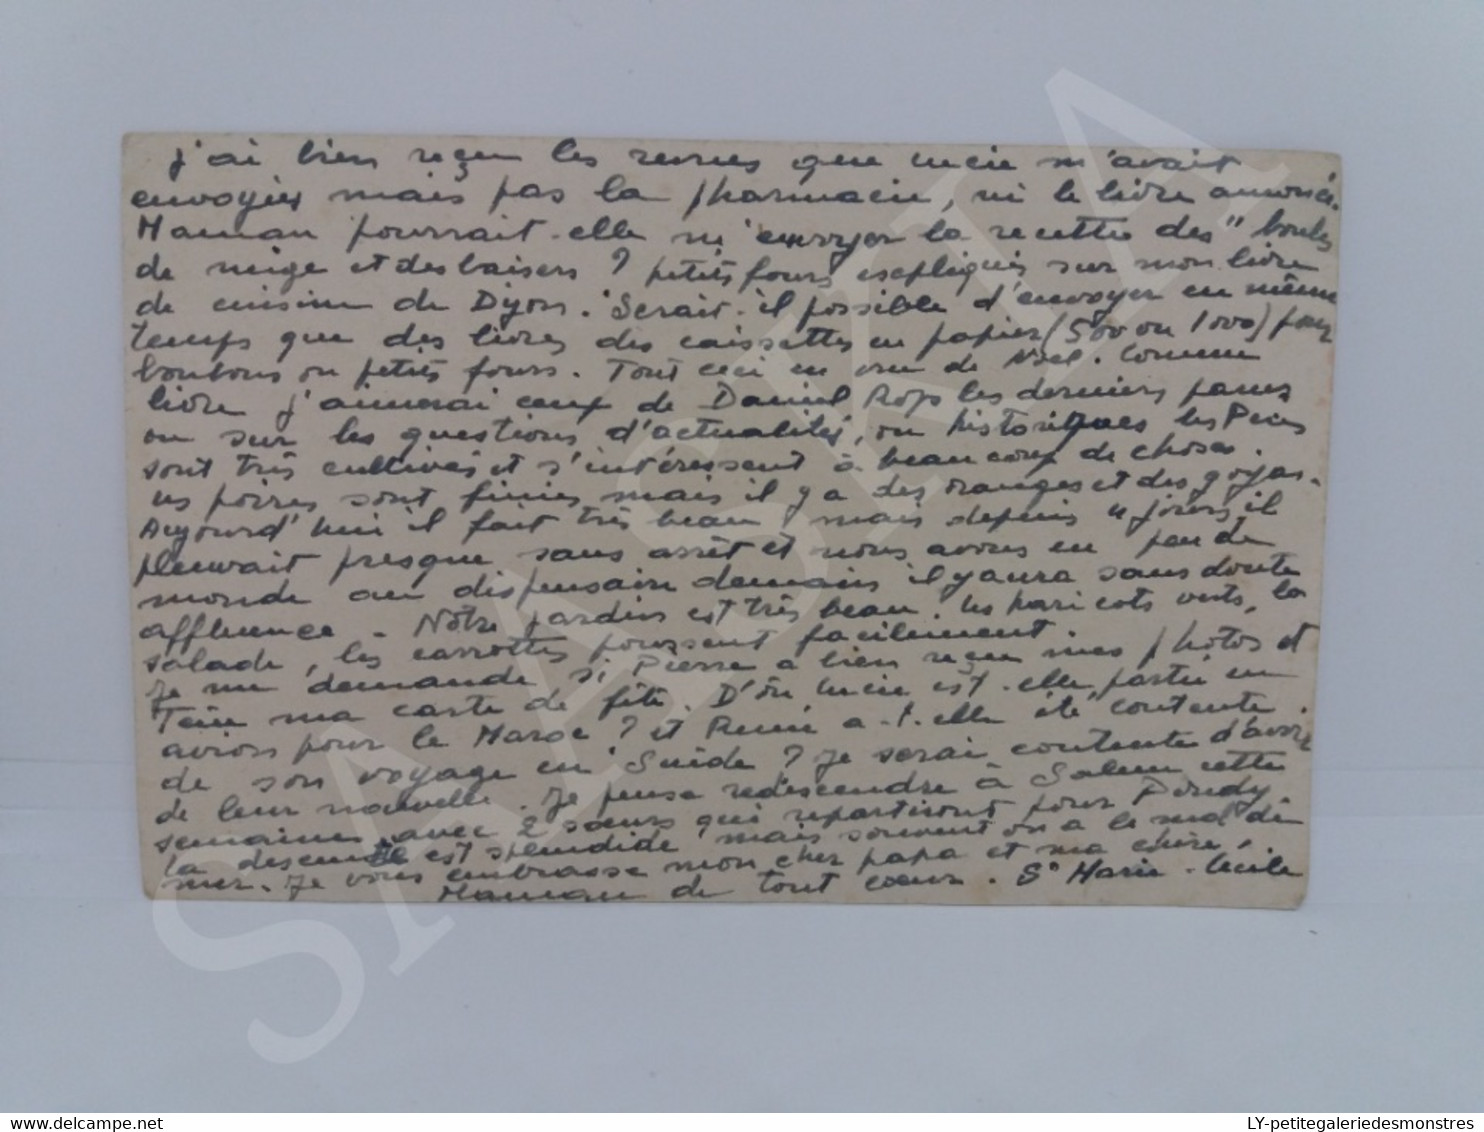 j'ai bien reçu les revues que Lucie m'avait
envoyées mais pas la pharmacie, ni le livre annoncé.
Maman pourrait-elle m'envoyer la recette des "boules
de neige et des baisers ? petits fours expliqués sur mon livre
de cuisine de Dijon. Serait-il possible d'envoyer en même
temps que des livres des caissettes en papier (500 ou 1000) pour
bonbons ou petits fours. Tout ceci en vue de Noël. Comme
livre j'aimerai ceux de Daniel Rops les derniers parus
ou sur les questions d'actualités, ou historiques les Pères
sont très cultivés et s'intéressent à beaucoup de choses.
Les poires sont finies mais il y a des oranges et des goyas.
Aujourd'hui il fait très beau, mais depuis 4 jours il
pleuvait presque sans arrêt et nous avons eu peu de
monde au dispensaire demain il y aura sans doute
affluence. Notre jardin est très beau. Les haricots verts, la
salade, les carrottes poussent facilement.
Je me demande si Pierre a bien reçu mes photos et
Tein ma carte de fête. D'où Lucie est-elle partie en
avion pour le Maroc ? et Renée a-t-elle été contente
de son voyage en Suède ? Je serai contente d'avoir
de leur nouvelle. Je pense redescendre à Salem cette
semaine avec 2 sœurs qui repartiront pour Pondy
la descente est splendide mais souvent on a le mal de
mer. Je vous embrasse mon cher papa et ma chère
Maman de tout cœur. Sr Marie-Cécile
SAASKIA
delcampe.net
LY-petitegaleriedesmonstres